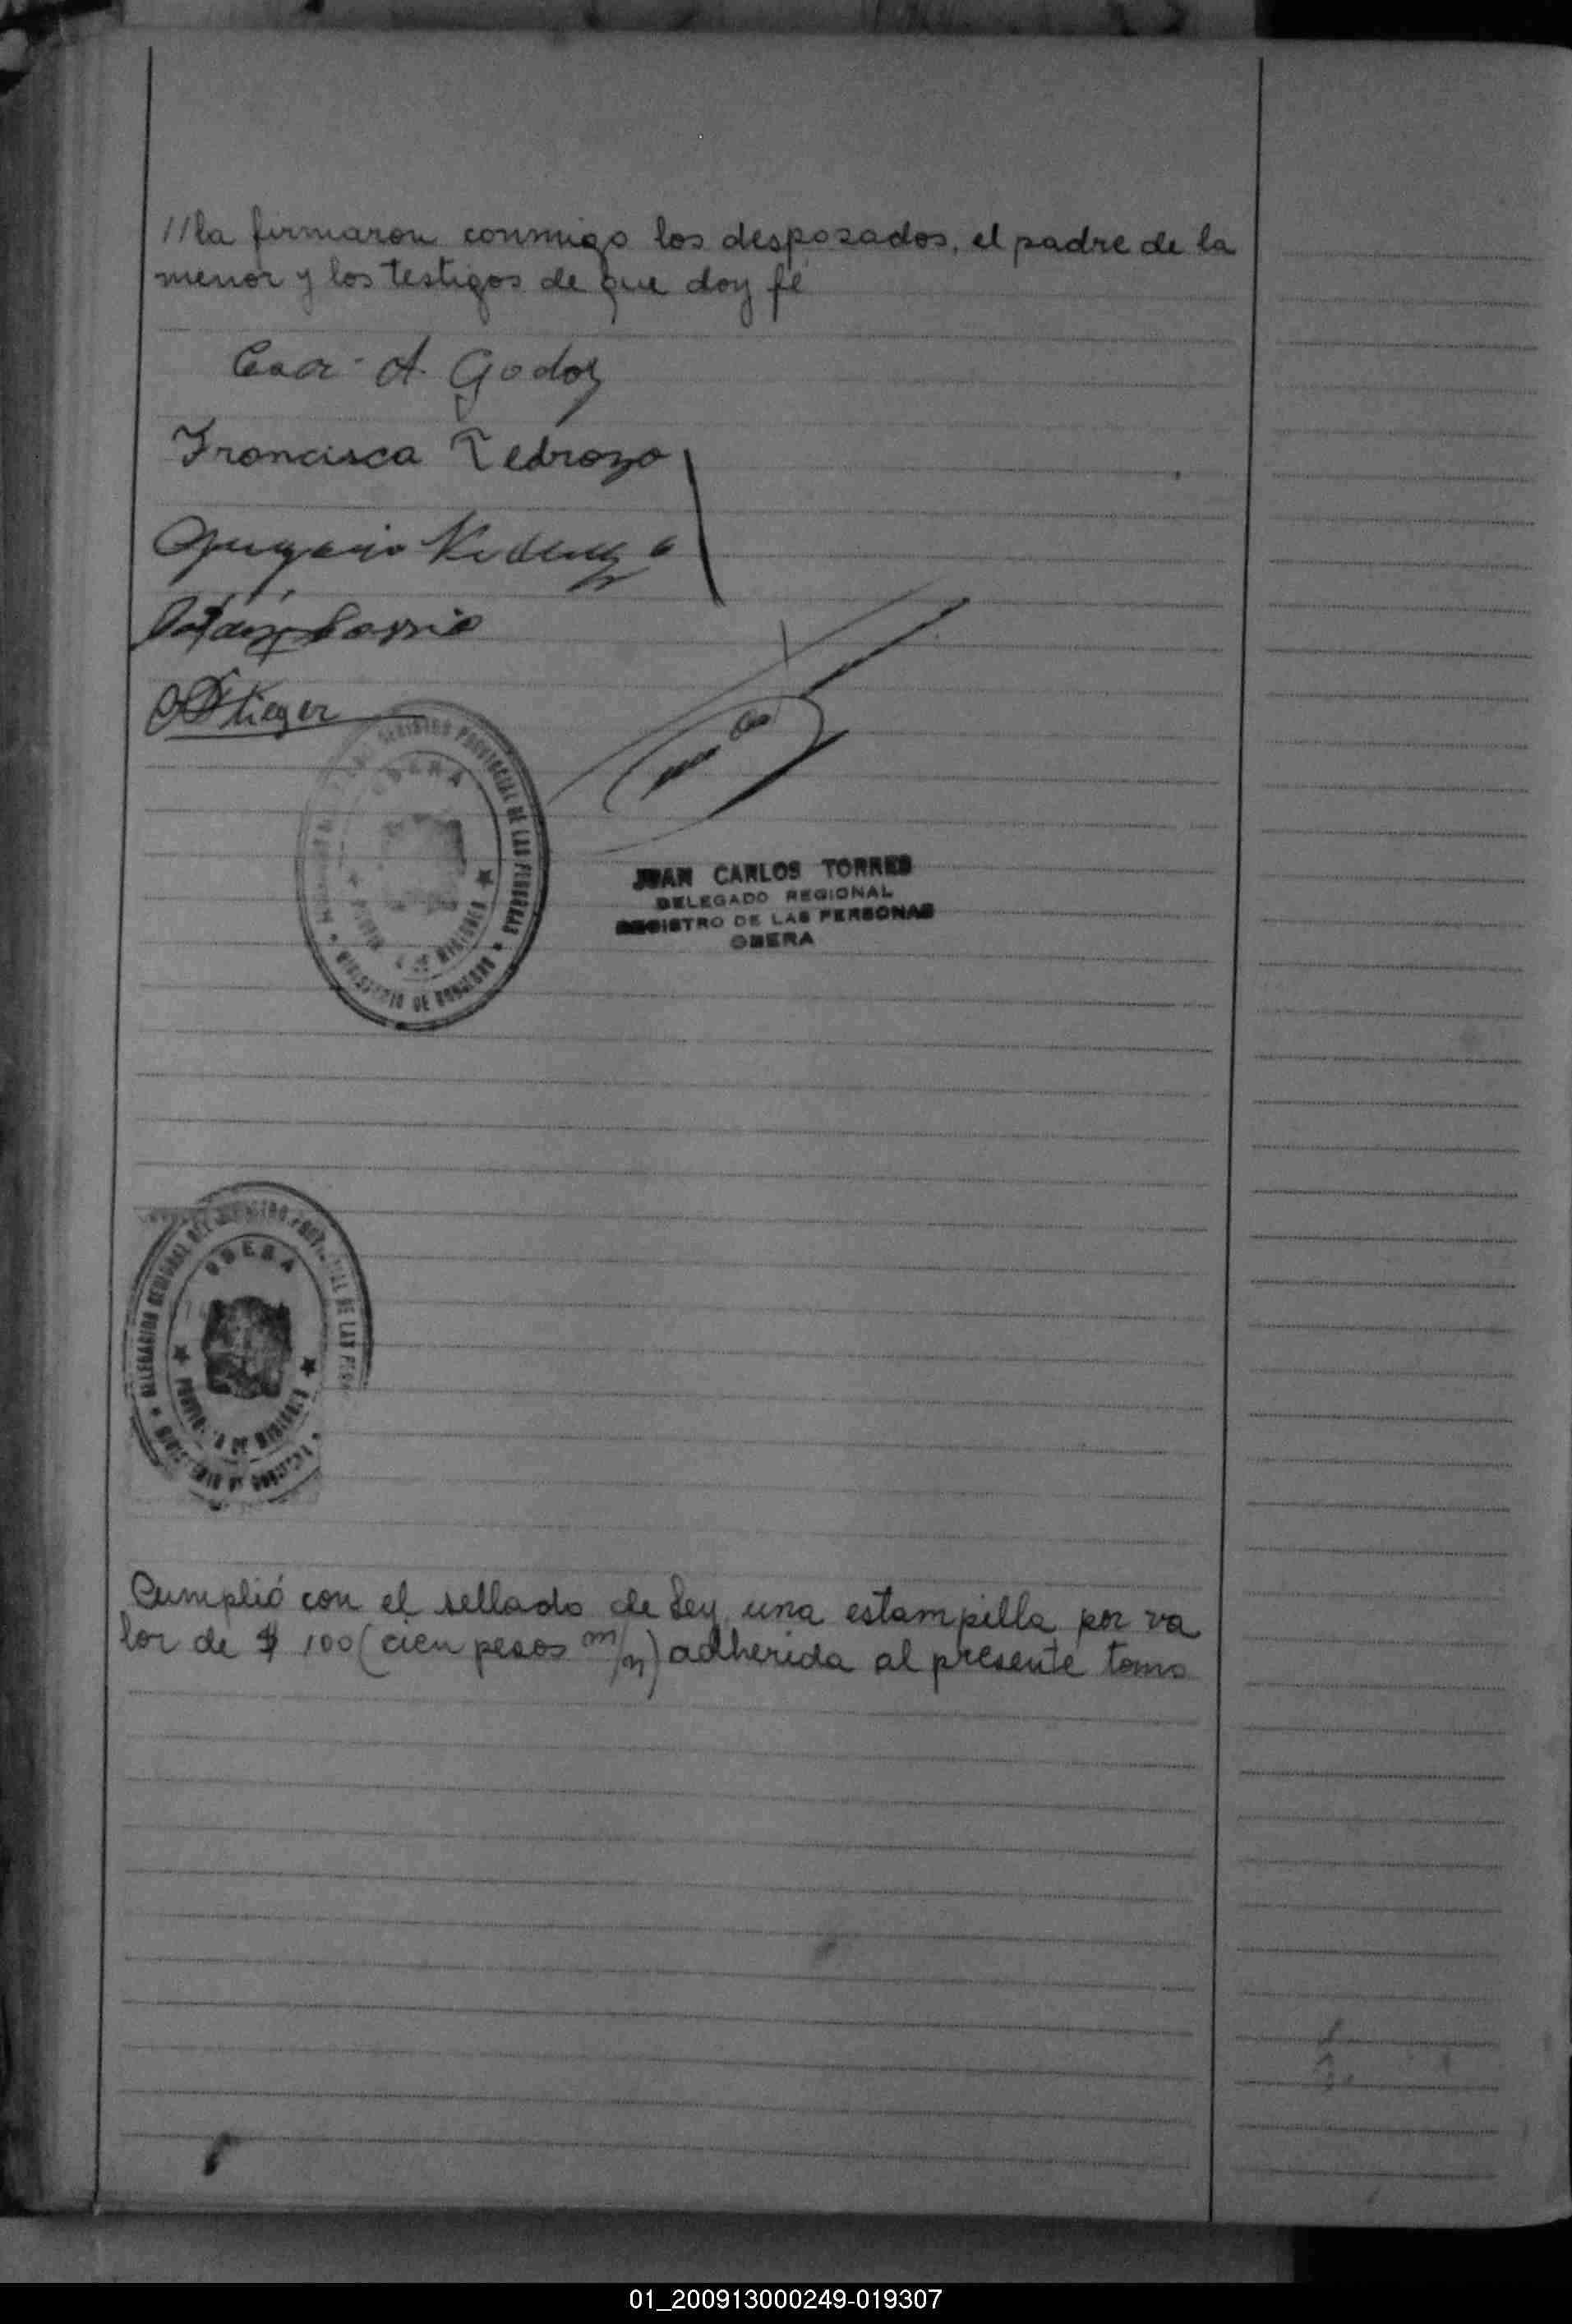 //la firmaron conmigo los desposados, el padre de la
menor y los testigos de que doy fé
A. Godoy
Francisca Pedrozo
JUAN CARLOS TORRES
DELEGADO REGIONAL
REGISTRO DE LAS PERSONAS
OBERA
REGISTRO PROVINCIAL DE LAS PERSONAS
OBERA
PROVINCIA DE MISIONES
MINISTERIO DE GOBIERNO
DELEGACION REGIONAL DEL REGISTRO PROVINCIAL DE LAS PERS
OBERA
PROVINCIA DE MISIONES
MINISTERIO DE GOBIERNO
Cumplió con el sellado de Ley una estampilla por va
lor de $ 100 (cien pesos m/n) adherida al presente tomo
01_200913000249-019307